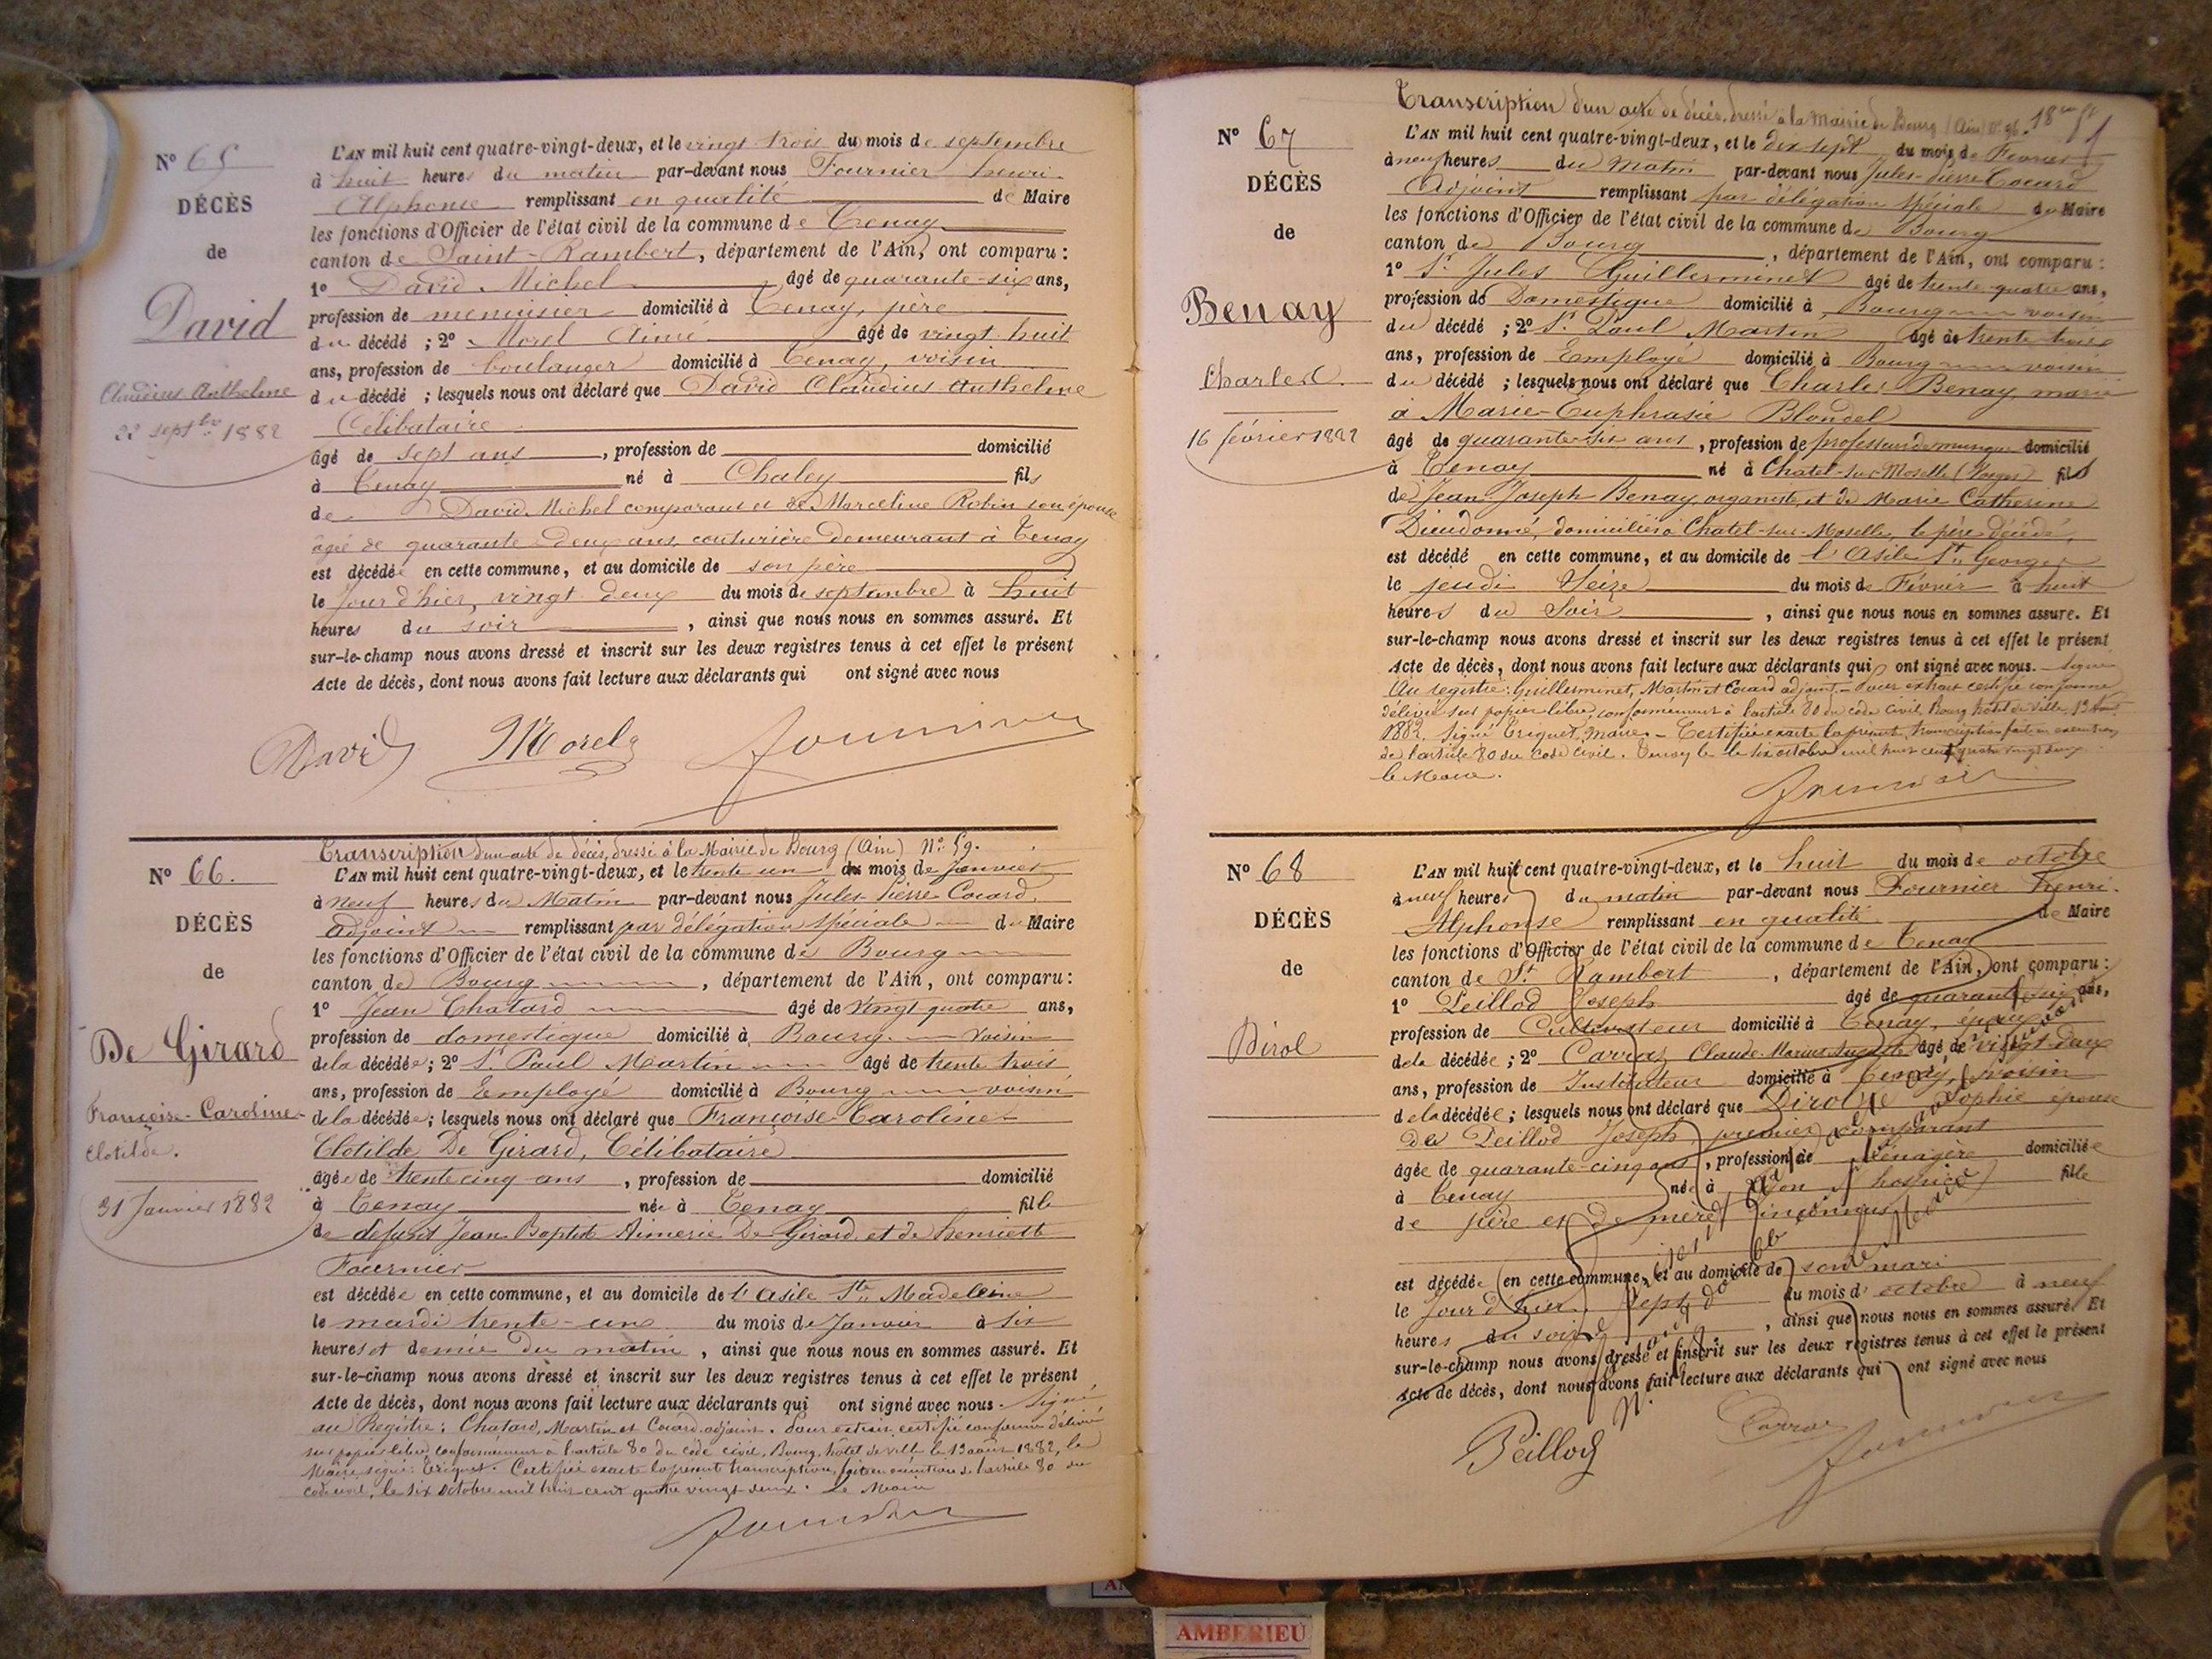 N° 65
DÉCÈS
de
David
Claudius Anthelme
22 septbre 1882
L'AN mil huit cent quatre-vingt-deux, et le vingt trois du mois de septembre
à huit heures du matin par-devant nous Fournier henri
Alphonse remplissant en qualité de Maire
les fonctions d'Officier de l'état civil de la commune de Tenay
canton de Saint-Rambert, département de l'Ain, ont comparu :
1° David Michel âgé de quarante-six ans,
profession de menuisier domicilié à Tenay, père
du décédé ; 2° Morel Aimé âgé de vingt huit
ans, profession de boulanger domicilié à Tenay, voisin
du décédé ; lesquels nous ont déclaré que David Claudius Anthelme
Célibataire
âgé de sept ans, profession de domicilié
à Tenay né à Chaley fils
de David Michel comparant et de Marceline Robin son épouse
âgée de quarante deux ans, couturière demeurant à Tenay
est décédé en cette commune, et au domicile de son père
le jour d'hier, vingt deux du mois de septembre à huit
heures du soir, ainsi que nous nous en sommes assuré. Et
sur-le-champ nous avons dressé et inscrit sur les deux registres tenus à cet effet le présent
Acte de décès, dont nous avons fait lecture aux déclarants qui ont signé avec nous
David Morel Fournier
N° 66.
DÉCÈS
de
De Girard
Françoise-Caroline
Clotilde.
31 Janvier 1882
Transcription d'un acte de décès, dressé à la Mairie de Bourg (Ain) N° 59.
L'AN mil huit cent quatre-vingt-deux, et le trente un du mois de Janvier
à neuf heures du Matin par-devant nous Jules-Pierre Cocard
adjoint remplissant par délégation spéciale du Maire
les fonctions d'Officier de l'état civil de la commune de Bourg
canton de Bourg, département de l'Ain, ont comparu :
1° Jean Chatard âgé de vingt quatre ans,
profession de domestique domicilié à Bourg voisin
de la décédée ; 2° Sr Paul Martin âgé de trente trois
ans, profession de Employé domicilié à Bourg voisin
de la décédée ; lesquels nous ont déclaré que Françoise-Caroline
Clotilde De Girard, Célibataire
âgée de trente cinq ans, profession de domicilié
à Tenay née à Tenay fille
de défunt Jean Baptiste Aimerie De Girard et de henriette
Fournier
est décédée en cette commune, et au domicile de l'Asile Ste Madeleine
le mardi trente-un du mois de Janvier à six
heures et demie du matin, ainsi que nous nous en sommes assuré. Et
sur-le-champ nous avons dressé et inscrit sur les deux registres tenus à cet effet le présent
Acte de décès, dont nous avons fait lecture aux déclarants qui ont signé avec nous. Signé
au Registre : Chatard, Martin et Cocard adjoint. Pour extrait certifié conforme délivré
sur papier libre, conformément à l'article 80 du code civil, Bourg, hôtel de ville le 13 août 1882, le
Maire signé : Criquet. Certifiée exacte la présente transcription, faite en exécution de l'article 80 du
code civil, le six octobre mil huit cent quatre vingt deux. Le Maire
Fournier
N° 67
DÉCÈS
de
Benay
Charles
16 février 1882
Transcription d'un acte de décès, dressé à la Mairie de Bourg (Ain) N° 96.
L'AN mil huit cent quatre-vingt-deux, et le dix sept du mois de Février
à neuf heures du matin par-devant nous Jules-Pierre Cocard
Adjoint remplissant par délégation spéciale du Maire
les fonctions d'Officier de l'état civil de la commune de Bourg
canton de Bourg, département de l'Ain, ont comparu :
1° Sr Jules Guillerminet âgé de trente quatre ans,
profession de Domestique domicilié à Bourg voisin
du décédé ; 2° Sr Paul Martin âgé de trente trois
ans, profession de Employé domicilié à Bourg voisin
du décédé ; lesquels nous ont déclaré que Charles Benay, marié
à Marie-Euphrasie Blondel
âgé de quarante-six ans, profession de professeur de musique domicilié
à Tenay né à Chatel-sur-Moselle (Vosges) fils
de Jean Joseph Benay organiste, et de Marie Catherine
Dieudonné, domiciliés à Chatel-sur-Moselle, le père décédé,
est décédé en cette commune, et au domicile de l'Asile St Georges
le jeudi Seize du mois de Février à huit
heures du Soir, ainsi que nous nous en sommes assuré. Et
sur-le-champ nous avons dressé et inscrit sur les deux registres tenus à cet effet le présent
Acte de décès, dont nous avons fait lecture aux déclarants qui ont signé avec nous. Signé
Au registre : Guillerminet, Martin et Cocard adjoint. Pour extrait certifié conforme
délivré sur papier libre, conformément à l'article 80 du code civil Bourg hôtel de ville, 13 Août
1882. Signé Criquet, Maire. Certifiée exacte la présente transcription faite en exécution
de l'article 80 du Code Civil. Tenay le six octobre mil huit cent quatre vingt deux
le Maire.
Fournier
N° 68
DÉCÈS
de
Dirol
L'AN mil huit cent quatre-vingt-deux, et le huit du mois de octobre
à neuf heures du matin par-devant nous Fournier Henri
Alphonse remplissant en qualité de Maire
les fonctions d'Officier de l'état civil de la commune de Tenay
canton de St Rambert, département de l'Ain, ont comparu :
1° Peillod Joseph âgé de quarante six ans,
profession de Cultivateur domicilié à Tenay, époux
de la décédée ; 2° Carraz Claude-Marius Auguste âgé de vingt-deux
ans, profession de Instituteur domicilié à Tenay, voisin
de la décédée ; lesquels nous ont déclaré que Sophie épouse
De Peillod Joseph, premier comparant
âgée de quarante-cinq ans, profession de Ménagère domiciliée
à Tenay née à hospice fille
de père et de mère inconnus
est décédée en cette commune, et au domicile de son mari
le jour d'hier, sept du mois d'octobre à neuf
heures du soir, ainsi que nous nous en sommes assuré. Et
sur-le-champ nous avons dressé et inscrit sur les deux registres tenus à cet effet le présent
Acte de décès, dont nous avons fait lecture aux déclarants qui ont signé avec nous
Peillod Carraz Fournier
AMBERIEU